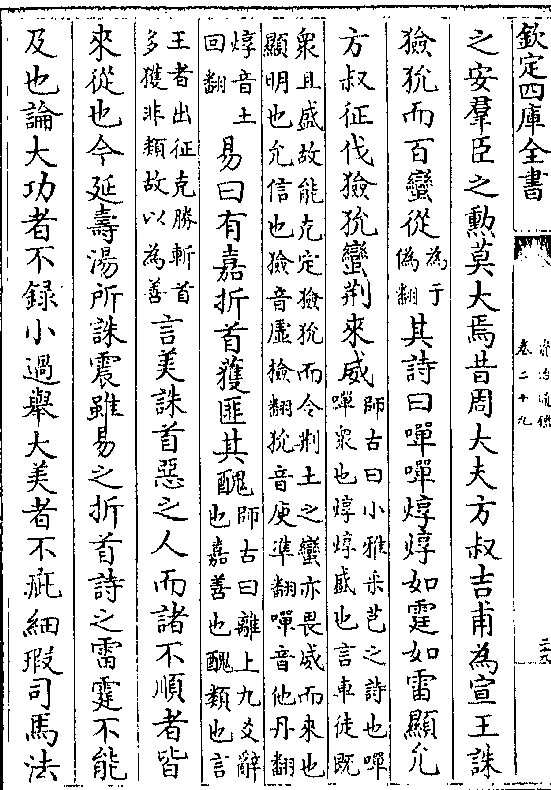 欽定四庫全書
資治通鑑
卷二十九
之安羣臣之勲莫大焉昔周大夫方叔吉甫為宣王誅
獫狁而百蠻從為于
偽翻其詩曰嘽嘽焞焞如霆如雷顯允
方叔征伐獫狁蠻荆來威師古曰小雅采芑之詩也嘽
嘽衆也焞焞盛也言車徒既
衆且盛故能克定獫狁而令荆土之蠻亦畏威而來也
顯明也允信也獫音虚檢翻狁音庾準翻嘽音他丹翻
焞音土
回翻易曰有嘉折首獲匪其醜師古曰離上九爻辭
也嘉善也醜類也言
王者出征克勝斬首
多獲非類故以為善言美誅首惡之人而諸不順者皆
來從也今延壽湯所誅震雖易之折首詩之雷霆不能
及也論大功者不録小過舉大美者不疵細瑕司馬法